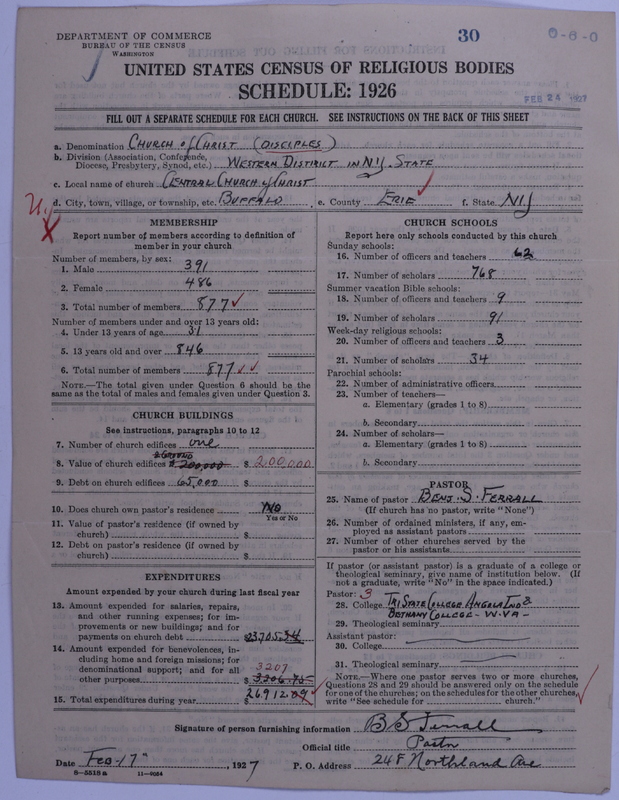 DEPARTMENT OF COMMERCE
BUREAU OF THE CENSUS
WASHINGTON
30
0-6-0
UNITED STATES CENSUS OF RELIGIOUS BODIES
SCHEDULE: 1926
FEB 24 1927
FILL OUT A SEPARATE SCHEDULE FOR EACH CHURCH. SEE INSTRUCTIONS ON THE BACK OF THIS SHEET
a. Denomination Church of Christ (Disciples)
b. Division (Association, Conference, Diocese, Presbytery, Synod, etc.) Western District in N.Y. State
c. Local name of church Central Church of Christ
d. City, town, village, or township, etc. Buffalo, e. County Erie f. State NY
MEMBERSHIP
Report number of members according to definition of
member in your church
Number of members, by sex:
1. Male 391
2. Female 486
3. Total number of members 877
Number of members under and over 13 years old:
4. Under 13 years of age 31
5. 13 years old and over 846
6. Total number of members 877
NOTE.—The total given under Question 6 should be the
same as the total of males and females given under Question 3.
CHURCH BUILDINGS
See instructions, paragraphs 10 to 12
7. Number of church edifices one
8. Value of church edifices $ 200,000 $ 200,000
9. Debt on church edifices 65,000 $
10. Does church own pastor's residence No
Yes or No
11. Value of pastor's residence (if owned by
church) $
12. Debt on pastor's residence (if owned by
church) $
EXPENDITURES
Amount expended by your church during last fiscal year
13. Amount expended for salaries, repairs,
and other running expenses; for im-
provements or new buildings; and for
payments on church debt $23,705.34
14. Amount expended for benevolences, in-
cluding home and foreign missions; for
denominational support; and for all
other purposes $ 3,206.75
3207
15. Total expenditures during year $ 26912.09
CHURCH SCHOOLS
Report here only schools conducted by this church
Sunday schools:
16. Number of officers and teachers 62
17. Number of scholars 768
Summer vacation Bible schools:
18. Number of officers and teachers 9
19. Number of scholars 91
Week-day religious schools:
20. Number of officers and teachers 3
21. Number of scholars 34
Parochial schools:
22. Number of administrative officers
23. Number of teachers—
a. Elementary (grades 1 to 8)
b. Secondary
24. Number of scholars—
a. Elementary (grades 1 to 8)
b. Secondary
PASTOR
25. Name of pastor Benj. S. Ferrall
(If church has no pastor, write "None")
26. Number of ordained ministers, if any, em-
ployed as assistant pastors
27. Number of other churches served by the
pastor or his assistants
If pastor (or assistant pastor) is a graduate of a college or
theological seminary, give name of institution below. (If
not a graduate, write "No" in the space indicated.)
Pastor: 3
28. College Tri State College Angola Ind 3
Bethany College - W. Va -
29. Theological seminary
Assistant pastor:
30. College
31. Theological seminary
NOTE.—Where one pastor serves two or more churches,
Questions 28 and 29 should be answered only on the schedule
for one of the churches; on the schedules for the other churches,
write "See schedule for church."
Signature of person furnishing information B S Ferrall
Official title Pastor
Date Feb-17", 1927 P. O. Address 248 Northland Ave
8-5518a 11-9064